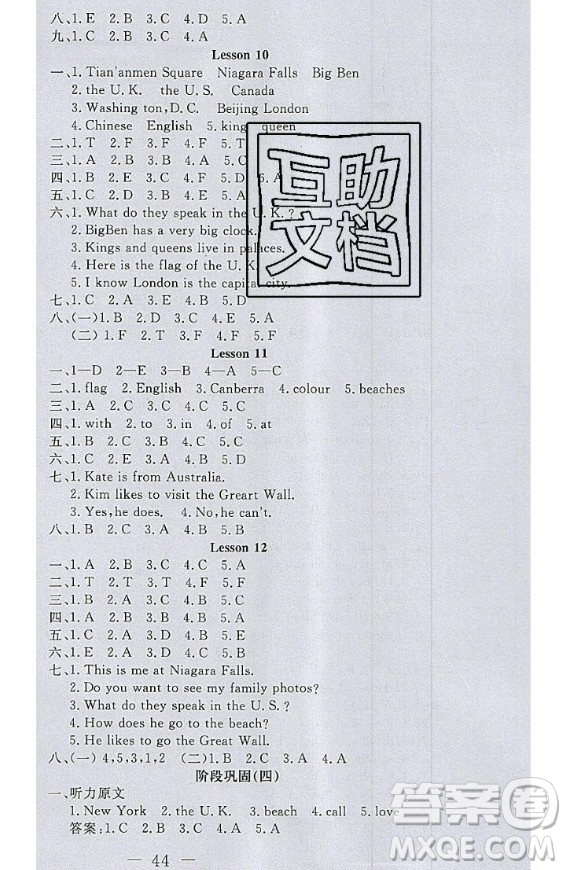 八、1. E 2. B 3. C 4. D 5. A
九、1. C 2. B 3. C 4. A
Lesson 10
一、1. Tian'anmen Square Niagara Falls Big Ben
2. the U. K. the U. S. Canada
3. Washing ton, D. C. Beijing London
4. Chinese English 5. king queen
二、1. T 2. F 3. F 4. F 5. T
三、1. A 2. B 3. B
四、1. B 2. B 3. C 4. A
五、1. C 2. A 3. D
六、1. What do they speak in the U. K. ?
2. BigBen has a very big clock.
3. Kings and queens live in palaces.
4. Here is the flag of the U. K.
5. I know London is the capital city.
七、1. C 2. A 3. D 4. E 5. B
八、(一)1. C 2. B 3. C 4. C 5. A
(二)1. F 2. T 3. F 4. T 5. F
Lesson 11
一、1—D 2—E 3—B 4—A 5—C
二、1. flag 2. English 3. Canberra 4. colour 5. beaches
三、1. A 2. C 3. B 4. C 5. B
四、1. with 2. to 3. in 4. of 5. at
五、1. B 2. C 3. B 4. C 5. C
六、1. B 2. C 3. D 4. E 5. A
七、1. Kate is from Australia.
2. Kim likes to visit the Greart Wall.
3. Yes, he does. 4. No, he can't.
八、1. B 2. C 3. A 4. B
Lesson 12
一、1. A 2. B 3. C 4. C 5. A
二、1. T 2. T 3. T 4. F 5. F
三、1. B 2. A 3. C 4. B 5. B
四、1. A 2. A 3. D 4. B 5. A
五、1. C 2. B 3. D 4. A 5. E
六、1. E 2. A 3. D 4. B 5. C
七、1. This is me at Niagara Falls.
2. Do you want to see my family photos?
3. What do they speak in the U. S. ?
4. How does he go to the beach?
5. He likes to go the Great Wall.
八、(一) 4,5,3,1,2 (二)1. B 2. C 3. A 4. A
阶段巩固(四)
一、听力原文
1. New York 2. the U. K. 3. beach 4. call 5. love
答案:1. C 2. A 3. C 4. B 5. A
— 44 —
互助
文档
答案圈
MXQE.COM